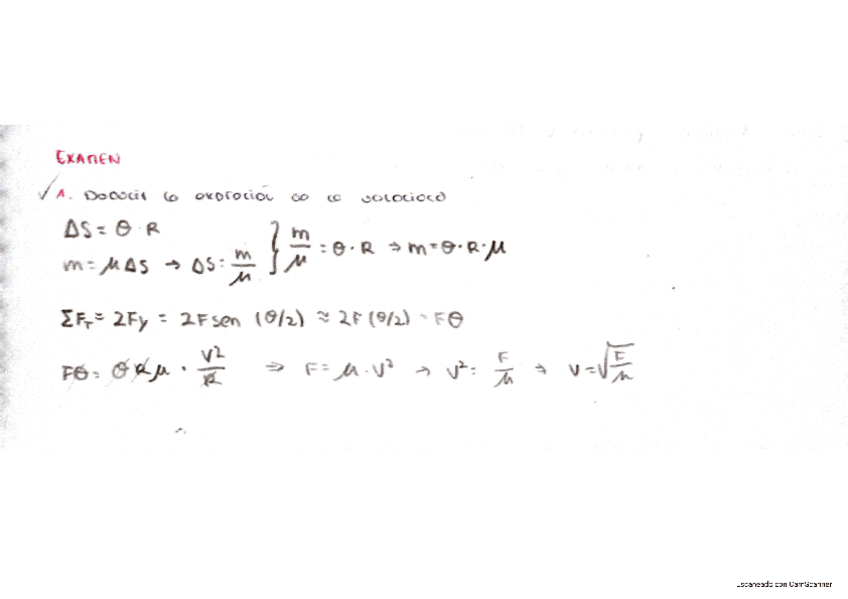 EXAMEN
✓ A. Deducir la expresión de la velocidad
ΔS = θ · R
m = μ ΔS → ΔS = m/μ } m/μ = θ · R ⇒ m = θ · R · μ
ΣF_T = 2Fy = 2F sen (θ/2) ≈ 2F (θ/2) = Fθ
Fθ = θ R μ · V²/R ⇒ F = μ · V² → V² = F/μ → V = √(F/μ)
Escaneado con CamScanner